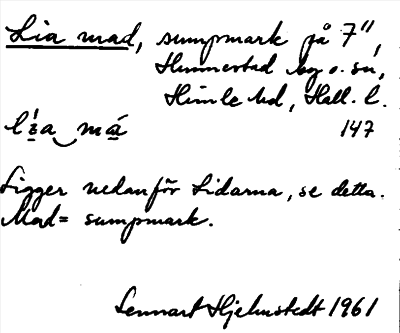 Lia mad, sumpmark på 7",
Hunnestad by o. sn,
Himle hd, Hall. l.
147
Ligger nedanför Lidarna, se detta.
Mad = sumpmark.
Lennart Hjelmstedt 1961